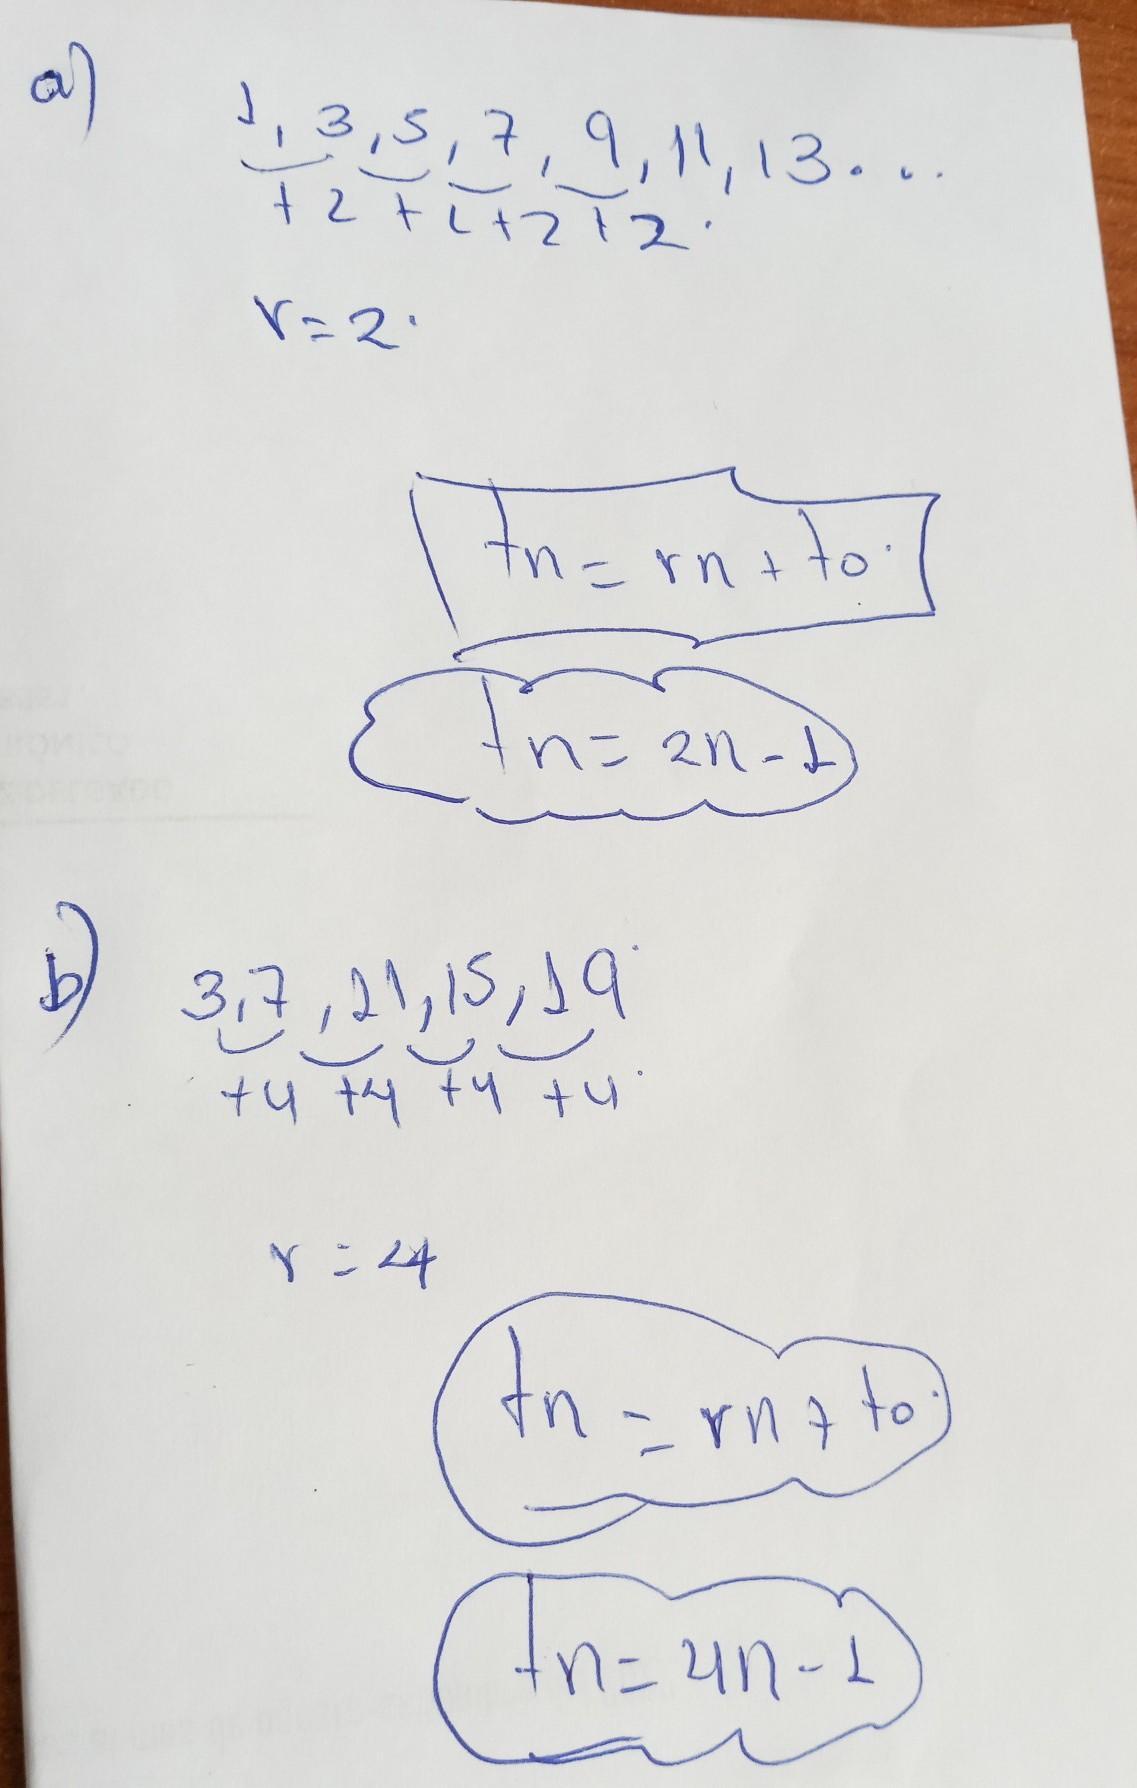 a)
1, 3, 5, 7, 9, 11, 13...
+2 +2 +2 +2
r=2
tn = rn + to
tn = 2n - 1
b)
3, 7, 11, 15, 19
+4 +4 +4 +4
r = 4
tn = rn + to
tn = 4n - 1